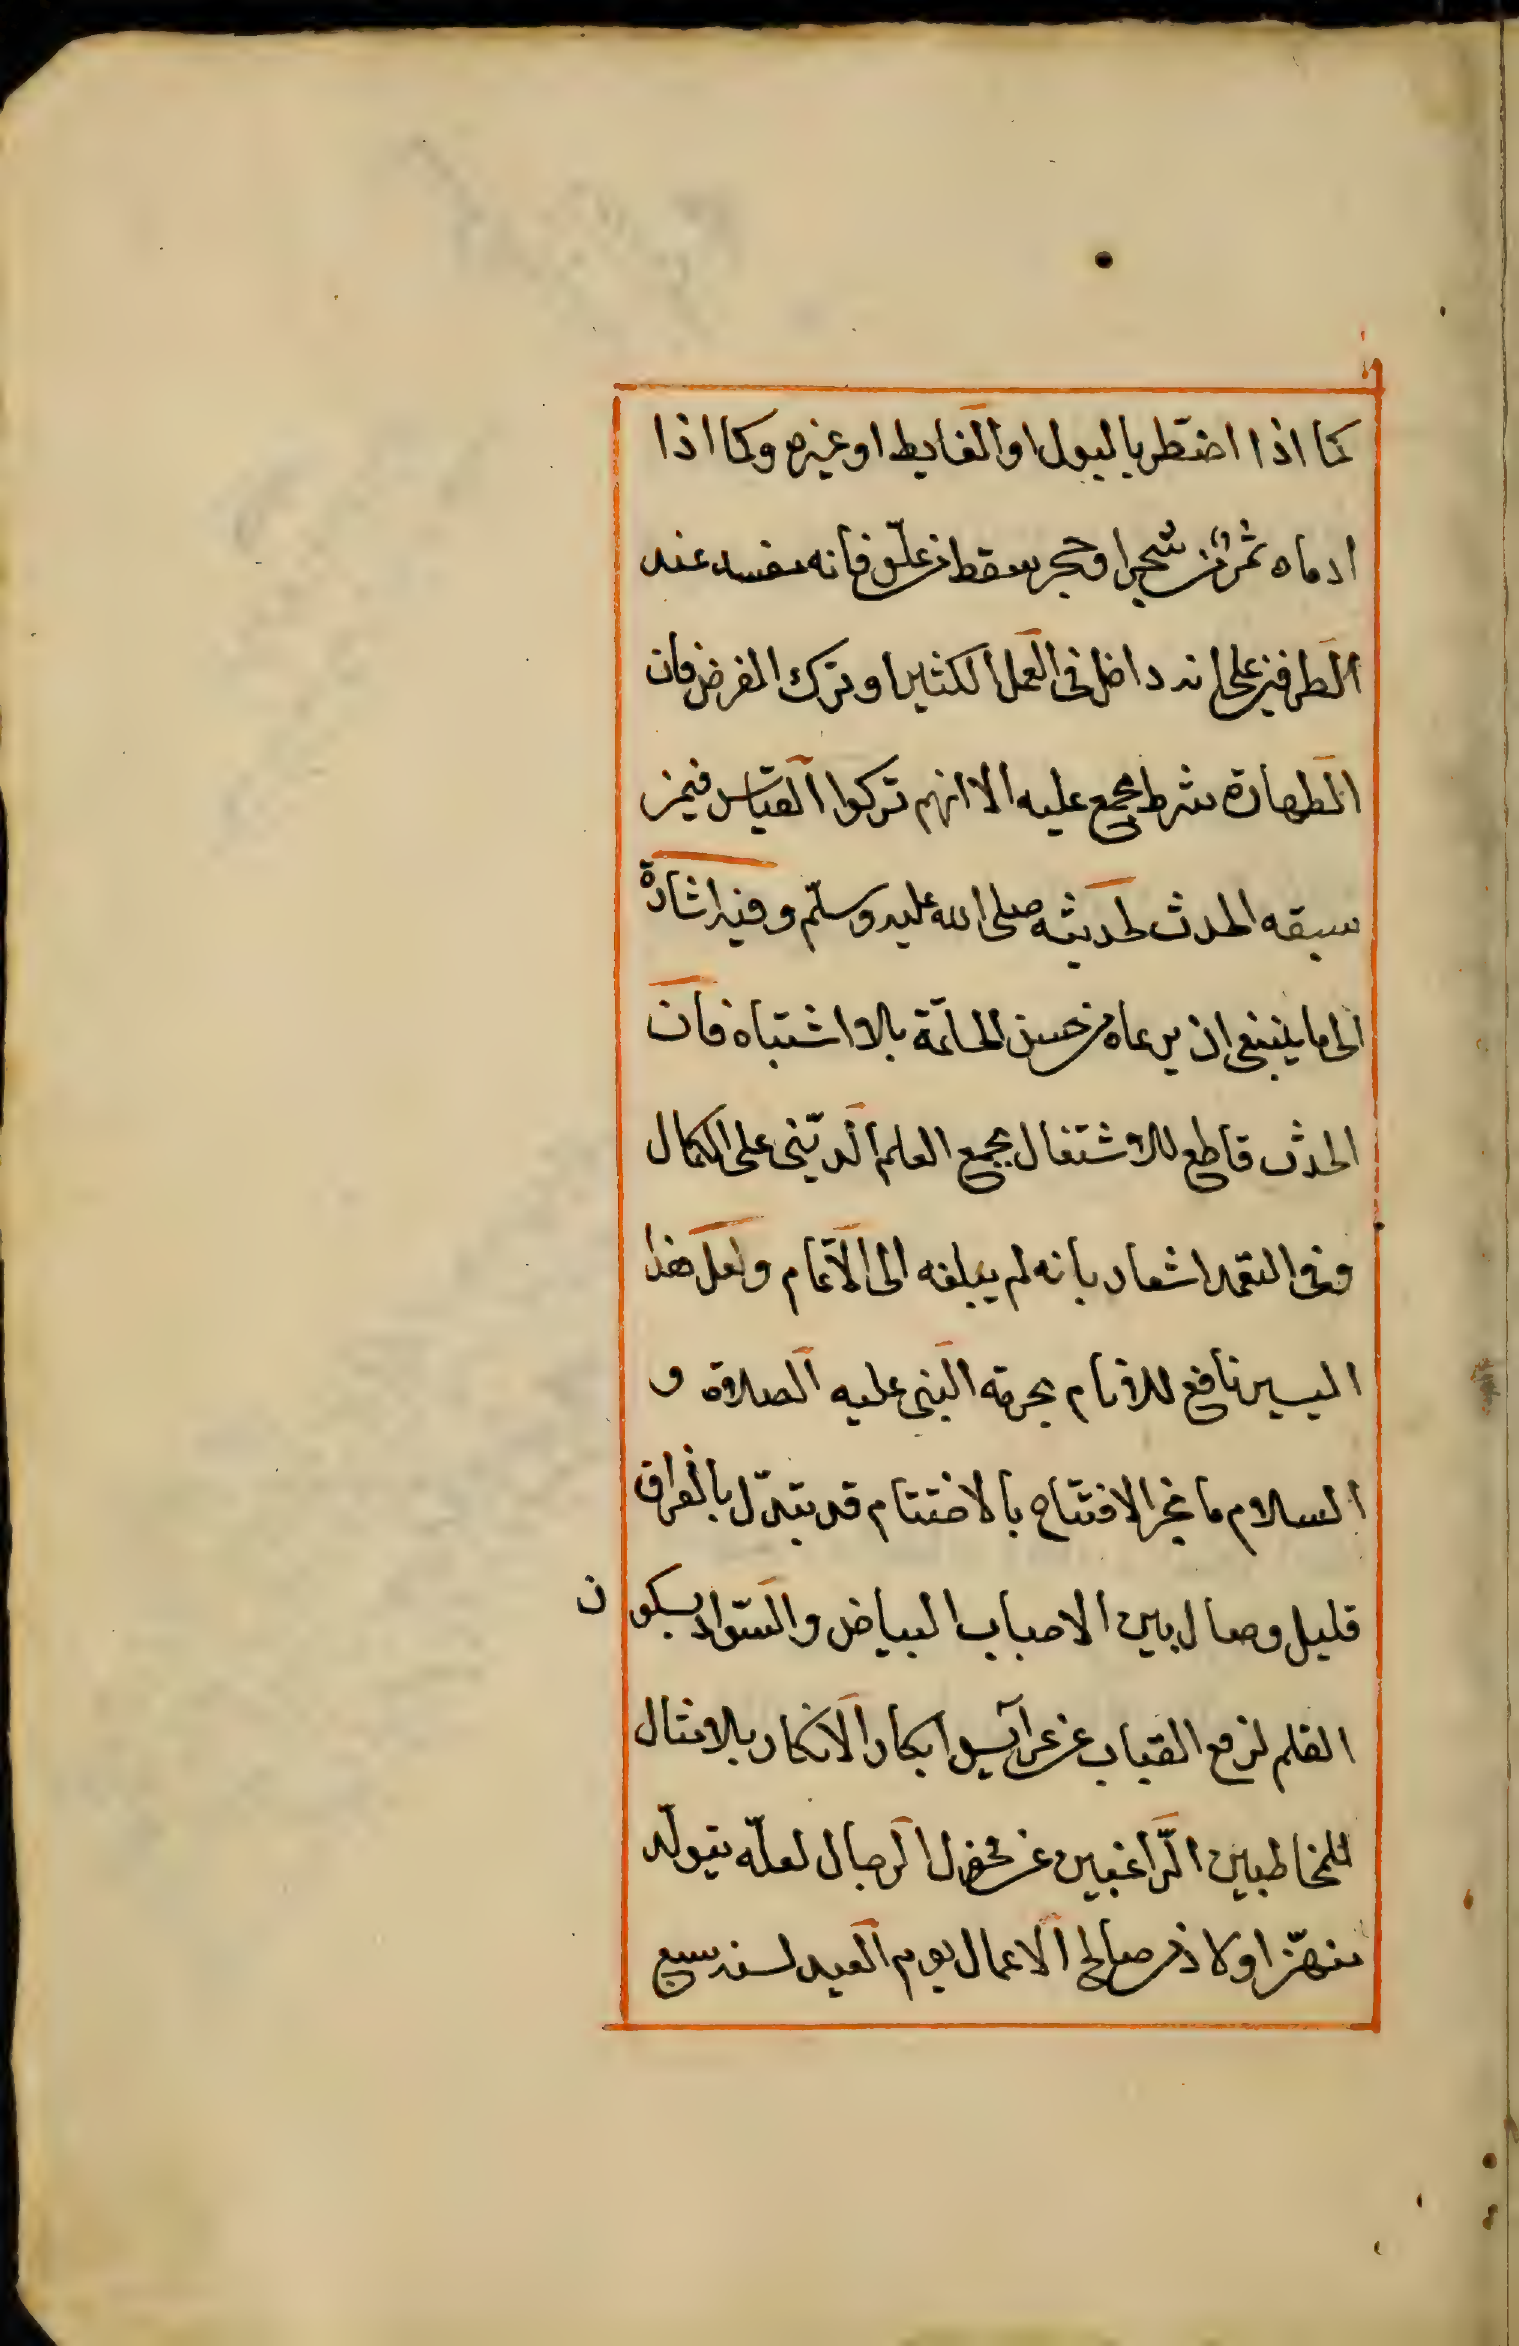 كما اذا اضطر بالبول او الغايط او غيره وكما اذا
ادماه ثمر من شجر او حجر سقط من علو فانه مفسد عند
الطرفين على انه داخل فى العمل الكثير او ترك الفرض فان
الطهارة شرط مجمع عليه الا انهم تركوا القياس فيمن
سبقه الحدث لحديثه صلى الله عليه وسلم وفيه اشارة
الى ما ينبغى ان يرعاه من حسن الخاتمة بالاشتباه فان
الحدث قاطع للاشتغال بجمع العلم الدينى على الكمال
وفى التعمد اشعار بانه لم يبلغه الى الاتمام ولعل هذا
اليسير نافع للانام بحرمة النبى عليه الصلاة و
السلام ما نجز الافتتاح بالاختتام قد يتبدل بالفراق
قليل وصال بين الاحباب البياض والسواد بسكون
القلم لرفع النقاب عن عرايس ابكار الافكار بالامتثال
للمخاطبين الراغبين عن محفل الرجال لعله يتولد
اولاد من صالح الاعمال يوم العيد لسنه سبع